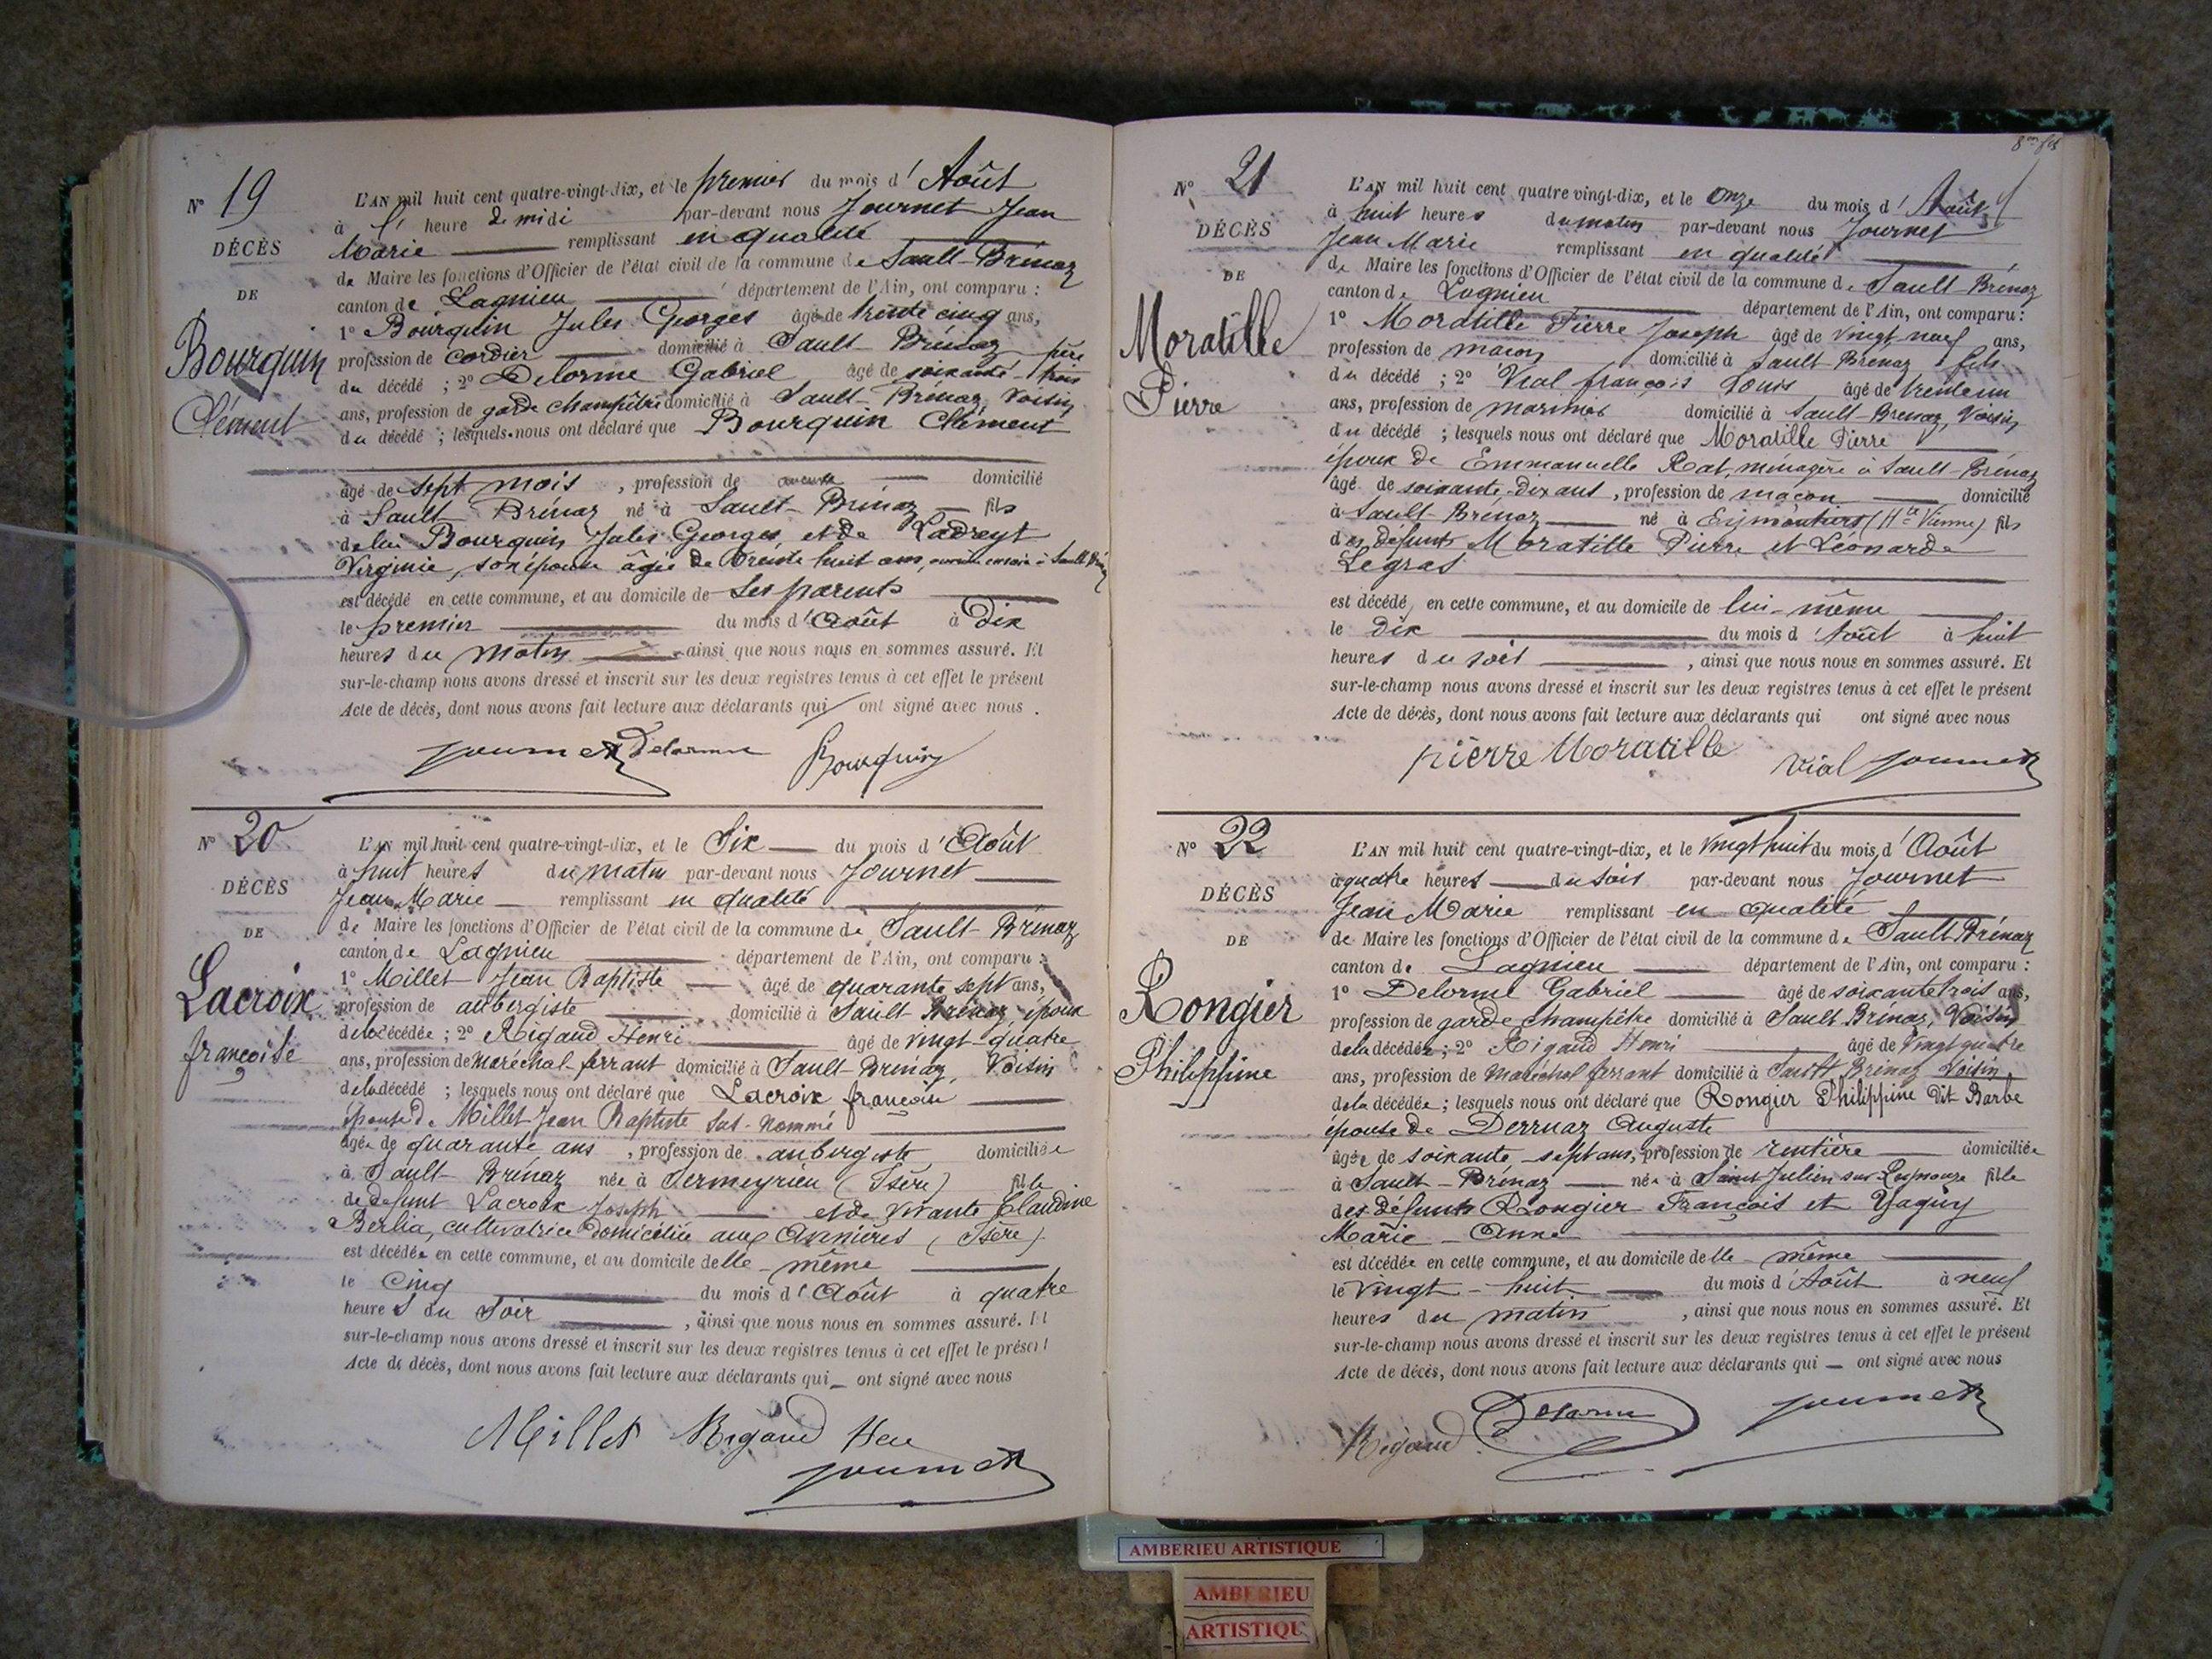 N° 19
DÉCÈS
DE
Bourquin
Clément
L'AN mil huit cent quatre-vingt-dix, et le premier du mois d'Août
à l' heure de midi par-devant nous Journet Jean
Marie remplissant en qualité
de Maire les fonctions d'Officier de l'état civil de la commune de Sault-Brénaz
canton de Lagnieu département de l'Ain, ont comparu :
1° Bourquin Jules Georges âgé de trente cinq ans,
profession de cordier domicilié à Sault Brénaz père
du décédé ; 2° Delorme Gabriel âgé de soixante trois
ans, profession de garde champêtre domicilié à Sault-Brénaz, Voisin
du décédé ; lesquels nous ont déclaré que Bourquin Clément
âgé de sept mois , profession de aucune domicilié
à Sault Brénaz né à Sault-Brénaz fils
de lui Bourquin Jules Georges et de Ladreyt
Virginie, son épouse âgée de trente huit ans, à Sault
est décédé en cette commune, et au domicile de ses parents
le premier du mois d'Août à Dix
heures du matin ainsi que nous nous en sommes assuré. Et
sur-le-champ nous avons dressé et inscrit sur les deux registres tenus à cet effet le présent
Acte de décès, dont nous avons fait lecture aux déclarants qui ont signé avec nous .
Journet Delorme Bourquin
N° 20
DÉCÈS
DE
Lacroix
françoise
L'AN mil huit cent quatre-vingt-dix, et le Six du mois d'Août
à huit heures du matin par-devant nous Journet
Jean Marie remplissant en qualité
de Maire les fonctions d'Officier de l'état civil de la commune de Sault-Brénaz
canton de Lagnieu département de l'Ain, ont comparu :
1° Millet Jean Baptiste âgé de quarante sept ans,
profession de aubergiste domicilié à Sault Brénaz, époux
de la décédée ; 2° Rigaud Henri âgé de vingt-quatre
ans, profession de maréchal-ferrant domicilié à Sault-Brénaz, Voisin
de la décédé ; lesquels nous ont déclaré que Lacroix françoise
épouse de Millet Jean Baptiste sus-nommé
âgée de quarante ans , profession de aubergiste domiciliée
à Sault-Brénaz née à Sermeyrieu (Isère) fille
de défunt Lacroix Joseph et de vivante Claudine
Berlia, cultivatrice domiciliée aux Avenières (Isère)
est décédée en cette commune, et au domicile delle-même
le Cinq du mois d'Août à quatre
heures du Soir , ainsi que nous nous en sommes assuré. Et
sur-le-champ nous avons dressé et inscrit sur les deux registres tenus à cet effet le présent
Acte de décès, dont nous avons fait lecture aux déclarants qui ont signé avec nous
Millet Rigaud
Journet
N° 21
DÉCÈS
DE
Moratille
Pierre
L'AN mil huit cent quatre vingt-dix, et le onze du mois d'Août
à huit heures du matin par-devant nous Journet
Jean Marie remplissant en qualité
de Maire les fonctions d'Officier de l'état civil de la commune de Sault-Brénaz
canton de Lagnieu département de l'Ain, ont comparu :
1° Moratille Pierre Joseph âgé de vingt-neuf ans,
profession de maçon domicilié à Sault-Brénaz fils
du décédé ; 2° Vial françois Louis âgé de trente un
ans, profession de marinier domicilié à Sault-Brénaz, Voisin
du décédé ; lesquels nous ont déclaré que Moratille Pierre
époux de Emmanuelle Rat, ménagère à Sault-Brénaz
âgé de soixante-dix ans , profession de maçon domicilié
à Sault Brénaz né à Eymoutiers (Hte Vienne) fils
des défunts Moratille Pierre et Léonarde
Legras
est décédé, en cette commune, et au domicile de lui-même
le Dix du mois d'Août à huit
heures du soir , ainsi que nous nous en sommes assuré. Et
sur-le-champ nous avons dressé et inscrit sur les deux registres tenus à cet effet le présent
Acte de décès, dont nous avons fait lecture aux déclarants qui ont signé avec nous
pierre Moratille Vial Journet
N° 22
DÉCÈS
DE
Rongier
Philippine
L'AN mil huit cent quatre-vingt-dix, et le vingt huit du mois d'Août
à quatre heures du soir par-devant nous Journet
Jean Marie remplissant en qualité
de Maire les fonctions d'Officier de l'état civil de la commune de Sault Brénaz
canton de Lagnieu département de l'Ain, ont comparu :
1° Delorme Gabriel âgé de soixante trois ans,
profession de garde champêtre domicilié à Sault Brénaz, Voisin
de la décédée ; 2° Rigaud Henri âgé de Vingt quatre
ans, profession de Maréchal ferrant domicilié à Sault Brénaz Voisin
de la décédée ; lesquels nous ont déclaré que Rongier Philippine Dit Barbe
épouse de Derruaz Auguste
âgée de soixante-sept ans, profession de rentière domiciliée
à Sault-Brénaz née à Saint Julien sur fille
des défunts Rongier François et Yaguy
Marie-Anne
est décédée en cette commune, et au domicile delle-même
le Vingt-huit du mois d'Août à neuf
heures du matin , ainsi que nous nous en sommes assuré. Et
sur-le-champ nous avons dressé et inscrit sur les deux registres tenus à cet effet le présent
Acte de décès, dont nous avons fait lecture aux déclarants qui ont signé avec nous
Rigaud Delorme Journet
AMBERIEU ARTISTIQUE
AMBERIEU
ARTISTIQU